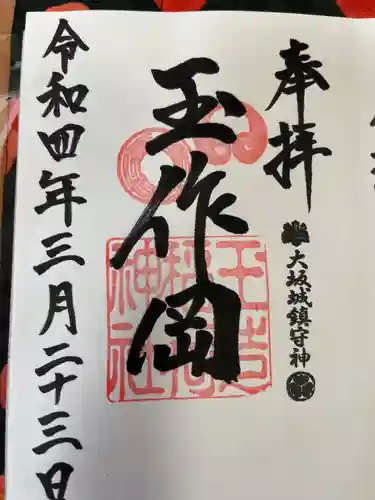 奉拝
大坂城鎮守神
玉作岡
玉造
稲荷
神社
令和四年三月二十三日